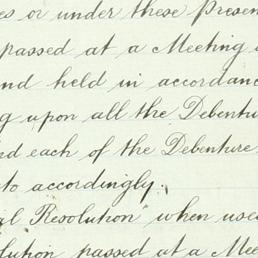 es or under these Presen
passed at a Meeting
nd held in accordanc
g upon all the Debentu
nd each of the Debenture
to accordingly.
al Resolution" when used
lution passed at a Mee